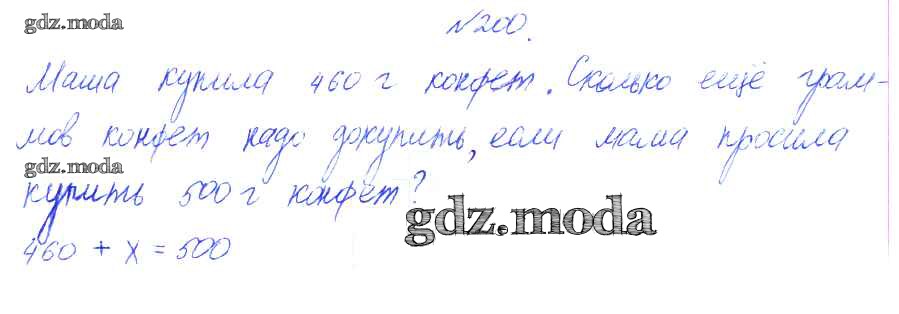 gdz.moda
№200.
Маша купила 460 г конфет. Сколько ещё грам-
мов конфет надо докупить, если мама просила
gdz.moda
купить 500 г конфет?
gdz.moda
460 + x = 500